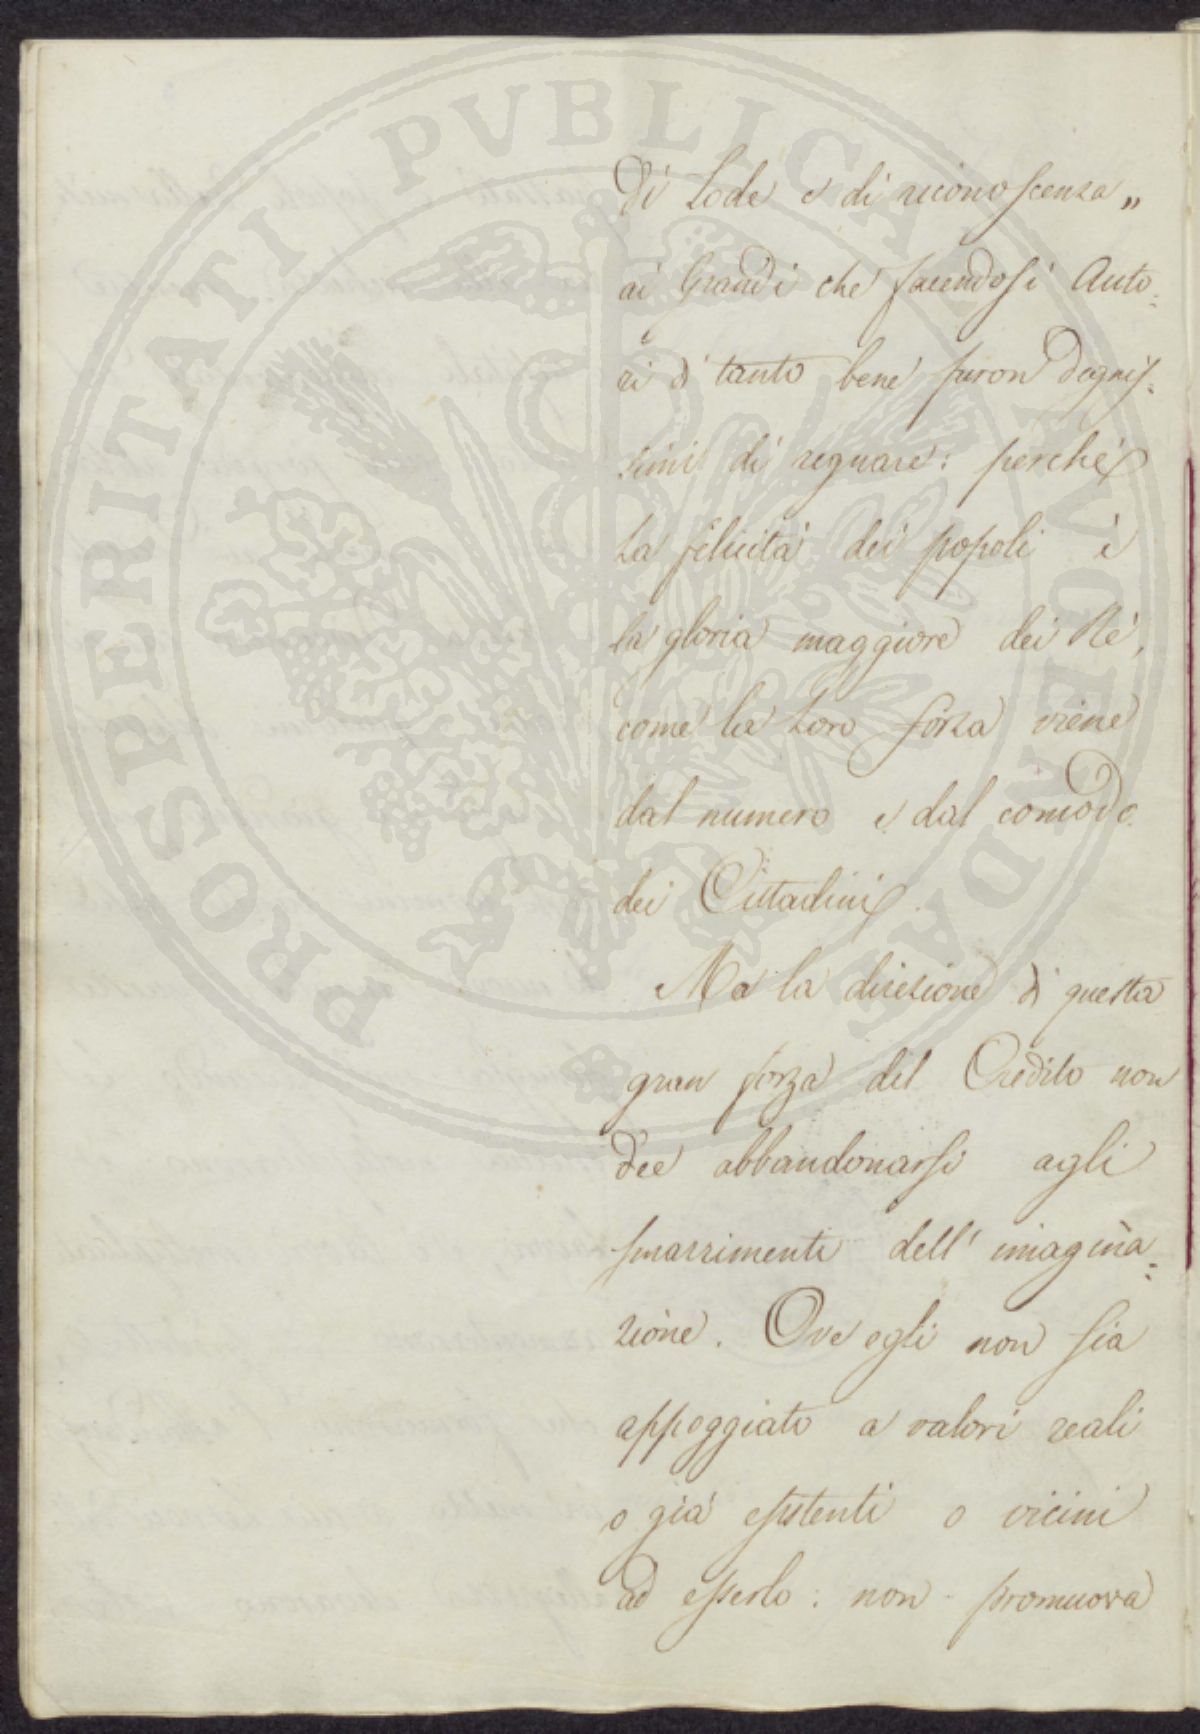 PROSPERITATI PUBLICAE ADVGENDAE
di Lode e di riconoscenza„
ai Grandi che facendosi Auto=
ri di tanto bene furon degnis=
simi di regnare: perchè
La felicità dei popoli è
la gloria maggiore dei Rè,
come la Loro forza viene
dal numero e dal comodo
dei Cittadini.
Ma la direzione di questa
gran forza del Credito non
dee abbandonarsi agli
smarrimenti dell'imagina=
zione. Ove egli non sia
appoggiato a valori reali
o già esistenti o vicini
ad esserlo: non promuova